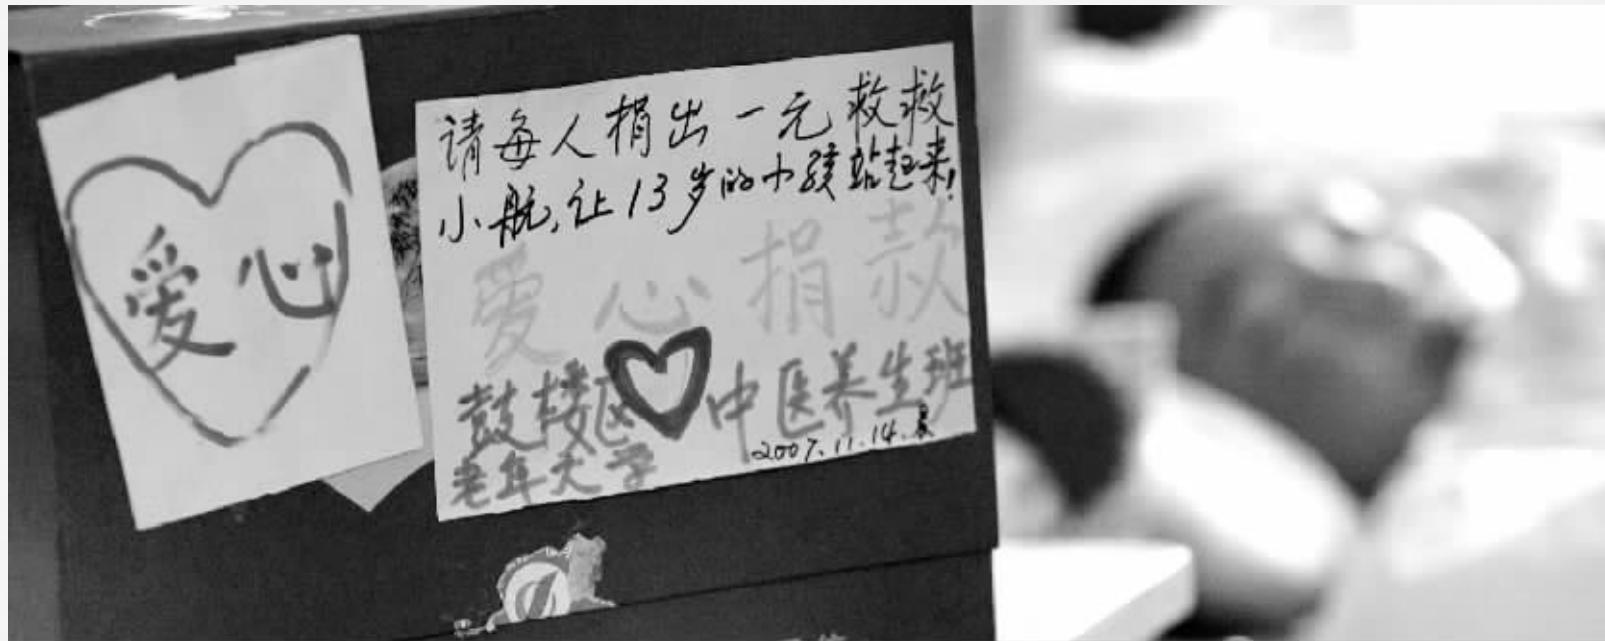 爱心
请每人捐出一元救救
小航,让13岁的小孩站起来!
爱心捐款
鼓楼区 中医养生班
老年大学
2007.11.14.